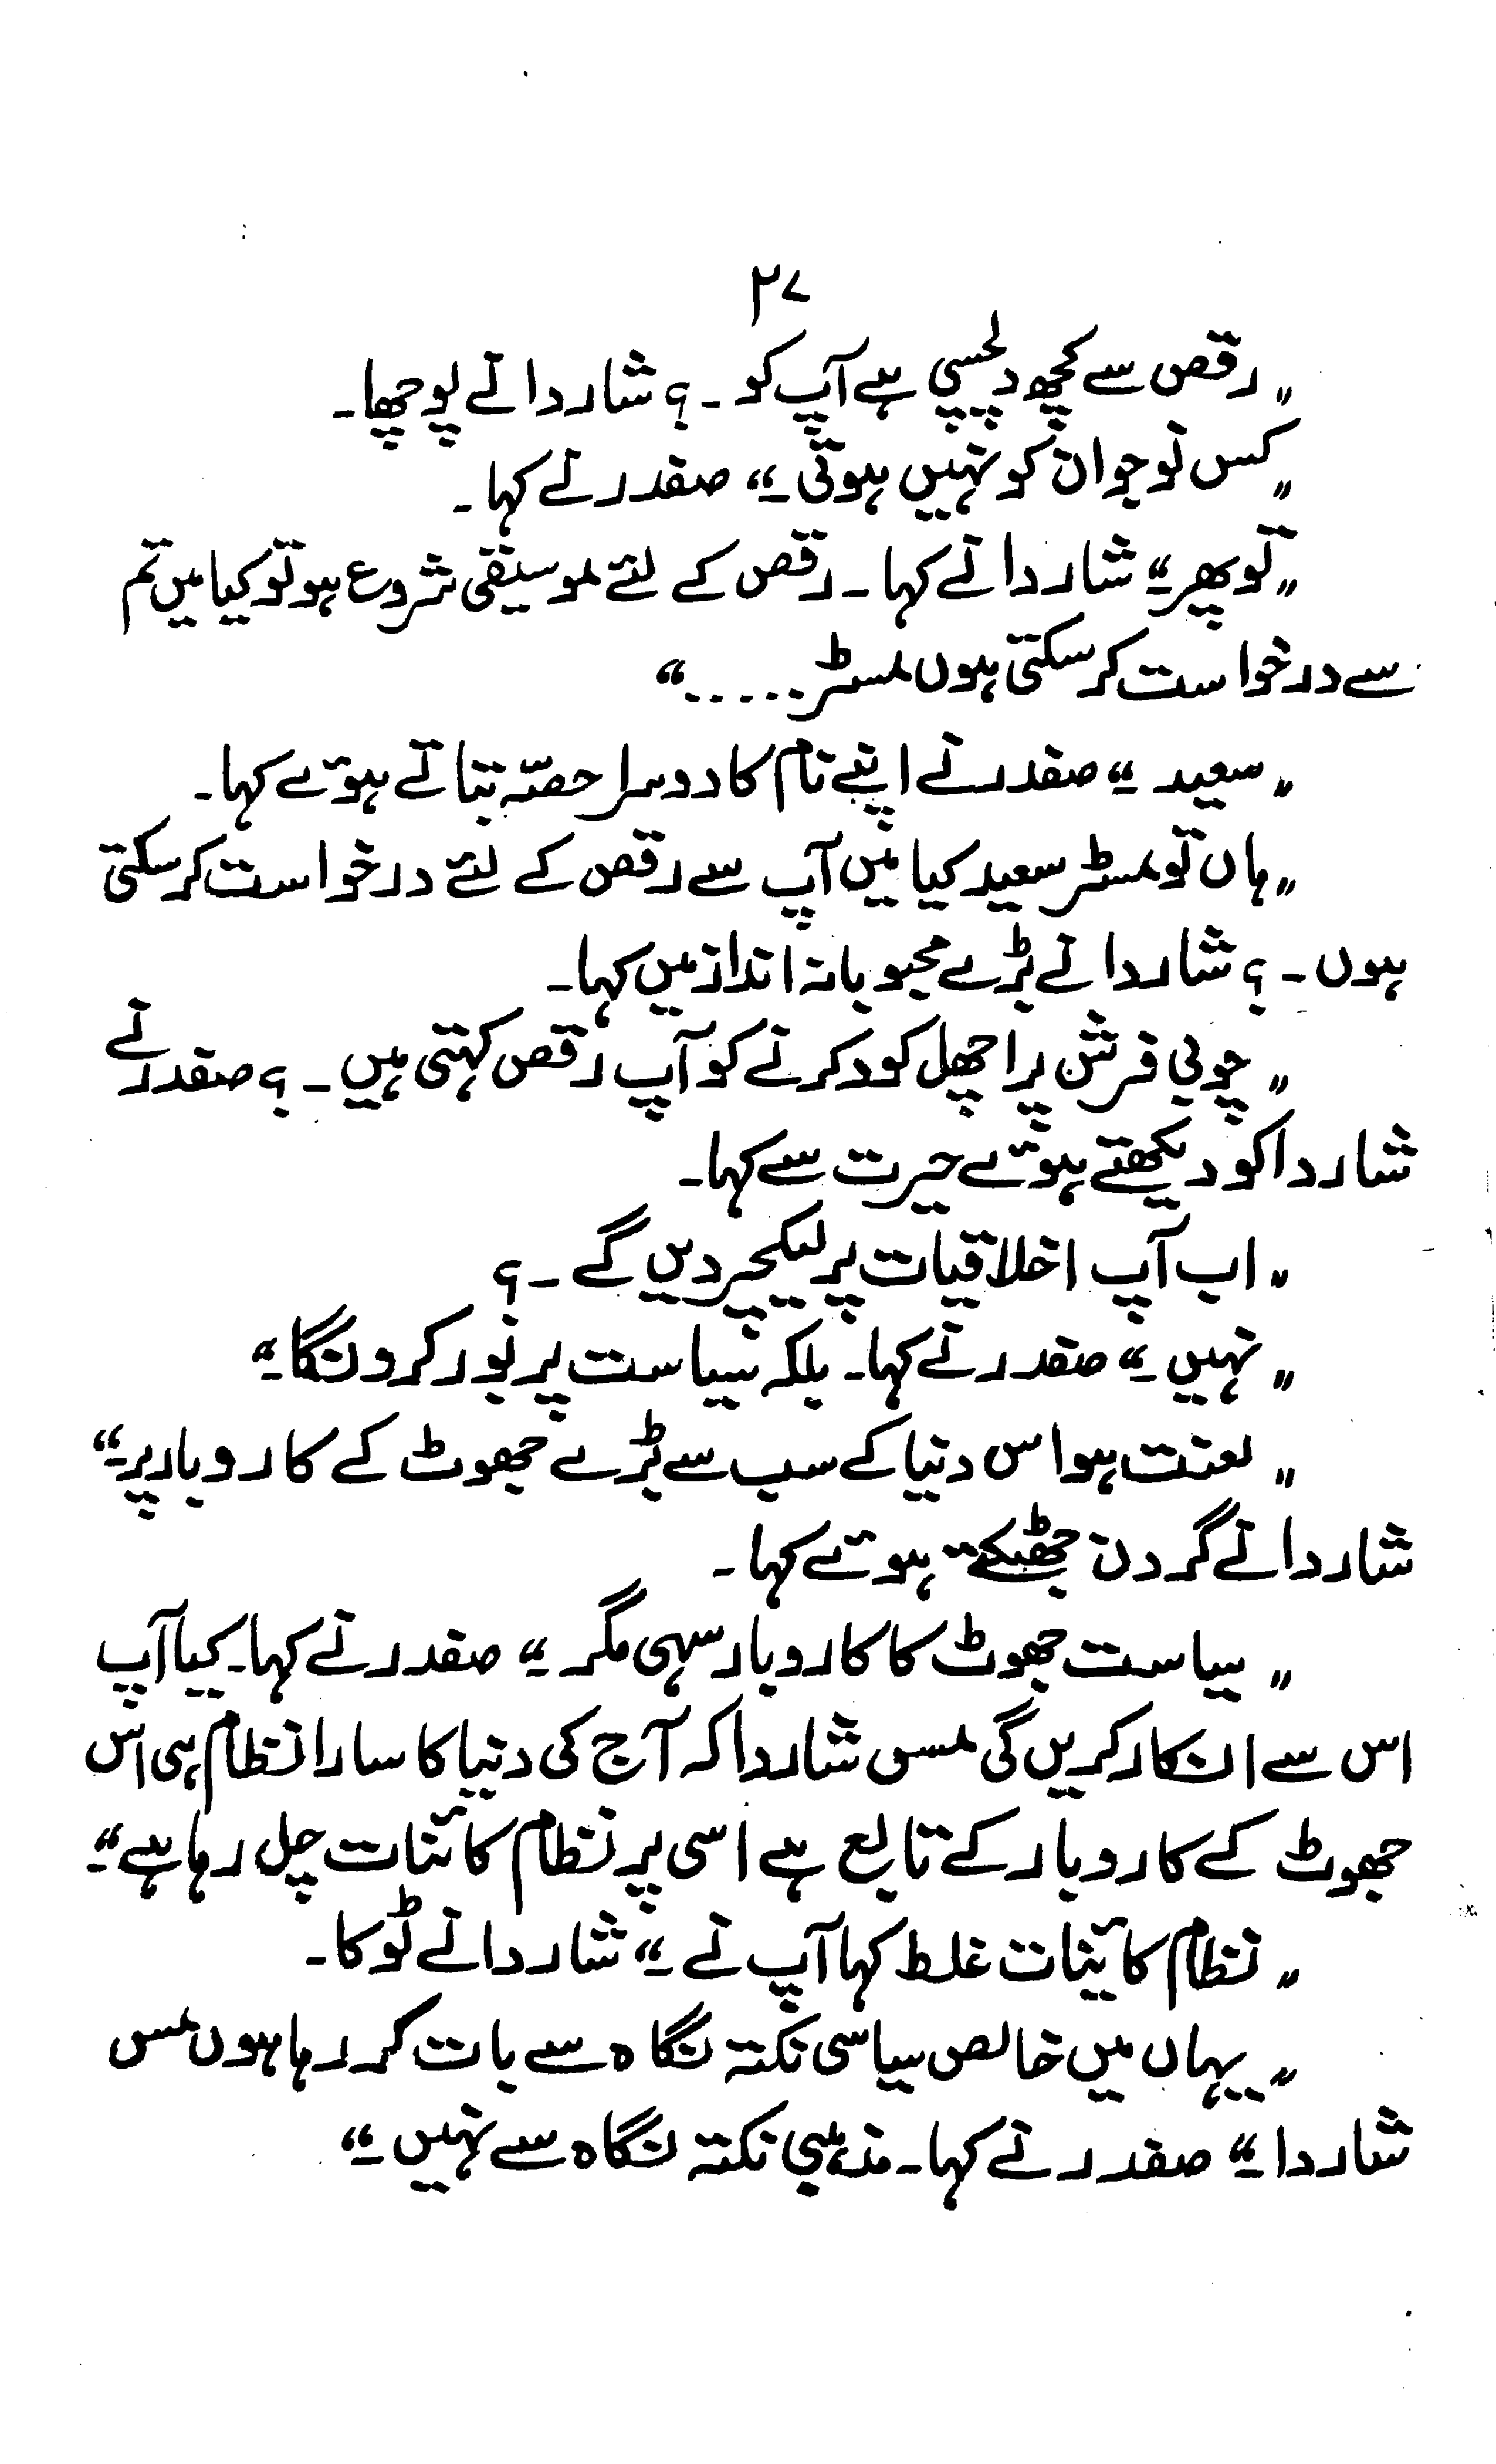 ۲۷
"رقص سے کچھ دلچسپی ہے آپ کو ۔ ؟ شاردا نے پوچھا۔
"کس نوجوان کو نہیں ہوتی ۔" صفدر نے کہا ۔
"تو پھر ۔" شاردا نے کہا ۔ رقص کے لئے موسیقی شروع ہو تو کیا میں تم
سے درخواست کر سکتی ہوں مسٹر ....."
"سعید ۔" صفدر نے اپنے نام کا دوسرا حصّہ بتاتے ہوئے کہا ۔
"ہاں تو مسٹر سعید کیا میں آپ سے رقص کے لئے درخواست کر سکتی
ہوں ۔ ؟ شاردا نے بڑے محبوبانہ انداز میں کہا ۔
"چوبی فرش پر اچھل کود کرنے کو آپ رقص کہتی ہیں ۔ ؟ صفدر نے
شاردا کو دیکھتے ہوئے حیرت سے کہا ۔
"اب آپ اخلاقیات پر لیکچر دیں گے ۔ ؟
"نہیں ۔" صفدر نے کہا ۔ بلکہ سیاست پر بور کروںگا ۔"
"لعنت ہو اس دنیا کے سب سے بڑے جھوٹ کے کاروبار پر ۔"
شاردا نے گردن جھٹکتے ہوئے کہا ۔
"سیاست جھوٹ کا کاروبار سہی مگر ۔" صفدر نے کہا ۔ کیا آپ
اس سے انکار کریں گی مس شاردا کہ آج کی دنیا کا سارا نظام ہی اس
جھوٹ کے کاروبار کے تابع ہے اسی پر نظام کائنات چل رہا ہے ۔"
"نظام کائنات غلط کہا آپ نے ۔" شاردا نے ٹوکا ۔
"یہاں میں خالص سیاسی نکتہ نگاہ سے بات کر رہا ہوں مس
شاردا ۔" صفدر نے کہا ۔ مذہبی نکتہ نگاہ سے نہیں ۔"